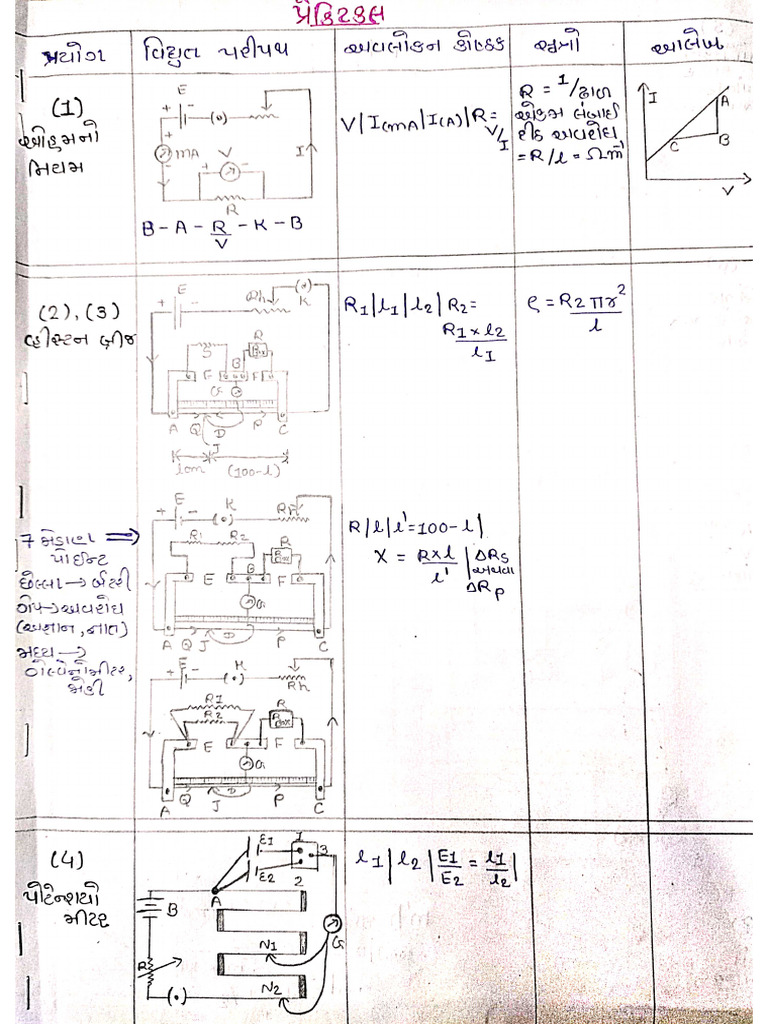 પ્રેક્ટિકલ
પ્રયોગ
વિદ્યુત પરીપથ
અવલોકન કોષ્ટક
સૂત્રો
આલેખ
(1)
ઓહમનો
નિયમ
E
+ -
(•)
+
mA
-
V
+ -
I
R
B-A-R/V-K-B
V|I(mA)|I(A)|R=V/I
R = 1/ઢાળ
એકમ લંબાઈ
દીઠ અવરોધ
=R/l = Ωm⁻¹
I
A
B
C
V
(2),(3)
વ્હીસ્ટન બ્રીજ
E
+ -
Rh
(•)
K
S
B
R
R Box
E
F
G
A
Q
D
P
C
J
lcm
(100-l)
R1|l1|l2|R2=
R1×l2/l1
ρ = R2πr²/l
7 જોડાણ ⇒
પોઈન્ટ
છેલ્લા → બેટરી
ગેપ → અવરોધ
(અજ્ઞાન, જ્ઞાત)
મધ્ય →
ગેલ્વેનોમીટર,
જોકી
E
+ -
K
(•)
Rh
R1
R2
R
R Box
E
B
F
G
A
Q
J
D
P
C
R|l|l'=100-l|
X = R×l/l' |ΔRs
અથવા
ΔRp
E
+ -
K
(•)
Rh
R1
R2
R
R Box
E
F
G
A
Q
J
D
P
C
(4)
પોટેન્શયો
મીટર
E1
E2
1
3
2
A
B
G
N1
R
(•)
N2
l1|l2|E1/E2 = l1/l2|